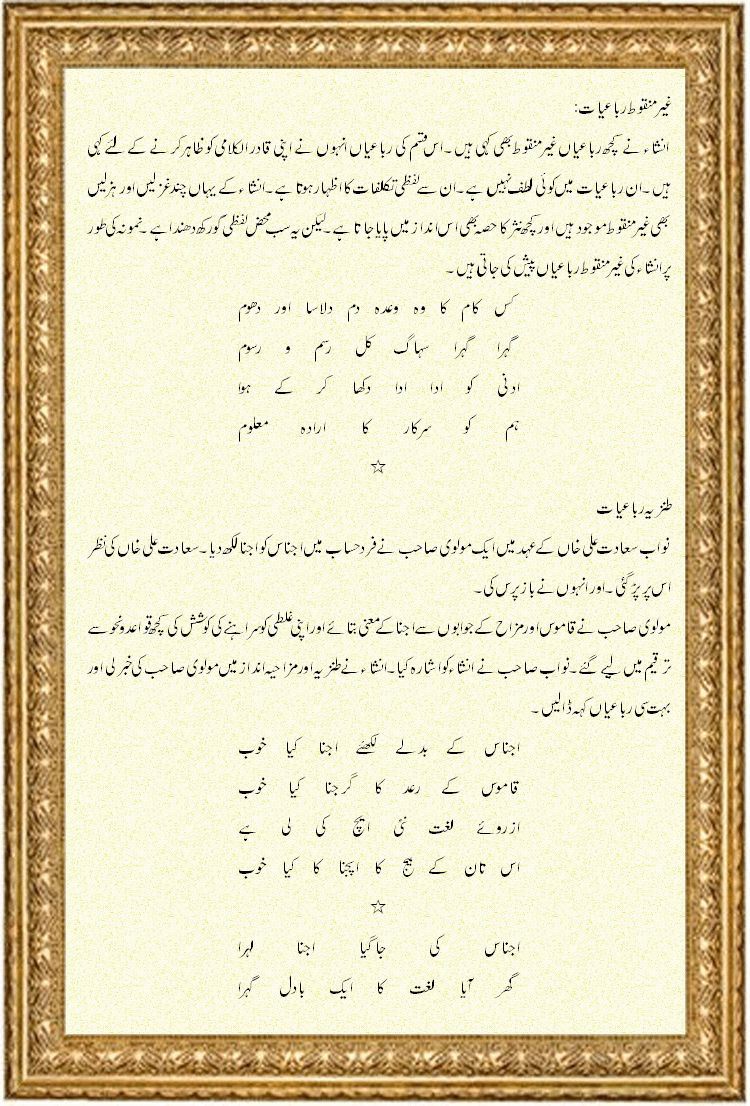 غیر منقوط رباعیات:
انشاء نے کچھ رباعیاں غیر منقوط بھی کہی ہیں۔اس قسم کی رباعیاں انہوں نے اپنی قادر الکلامی کو ظاہر کرنے کے لئے کہی
ہیں۔ان رباعیات میں کوئی لطف نہیں ہے۔ان سے لفظی تکلفات کا اظہار ہوتا ہے۔انشاء کے یہاں چند غزلیں اور ہزلیں
بھی غیر منقوط موجود ہیں اور کچھ نثر کا حصہ بھی اس انداز میں پایا جاتا ہے۔لیکن یہ سب محض لفظی گورکھ دھندا ہے۔نمونہ کی طور
پر انشاء کی غیر منقوط رباعیاں پیش کی جاتی ہیں۔
کس کام کا وہ وعدہ دم دلاسا اور دھوم
گہرا گہرا سہاگ کل رسم و رسوم
ادنی کو ادا ادا دکھا کر کے ہوا
ہم کو سرکار کا ارادہ معلوم
☆
طنزیہ رباعیات
نواب سعادت علی خاں کے عہد میں ایک مولوی صاحب نے فرد حساب میں اجناس کو اجنا لکھ دیا۔سعادت علی خاں کی نظر
اس پر پڑ گئی۔اور انہوں نے باز پرس کی۔
مولوی صاحب نے قاموس اور مزاح کے جوابوں سے اجنا کے معنی بتائے اور اپنی غلطی کو سراہنے کی کوشش کی کچھ قواعد و نحو سے
ترقیم میں لیے گئے۔نواب صاحب نے انشاء کو اشارہ کیا۔انشاء نے طنزیہ اور مزاحیہ انداز میں مولوی صاحب کی خبر لی اور
بہت سی رباعیاں کہہ ڈالیں۔
اجناس کے بدلے لکھئے اجنا کیا خوب
قاموس کے رعد کا گرجنا کیا خوب
ازروئے لغت نئی اپچ کی لی ہے
اس تان کے بیج کا اپجنا کا کیا خوب
☆
اجناس کی جاگیا اجنا لہرا
گھر آیا لغت کا ایک بادل گہرا